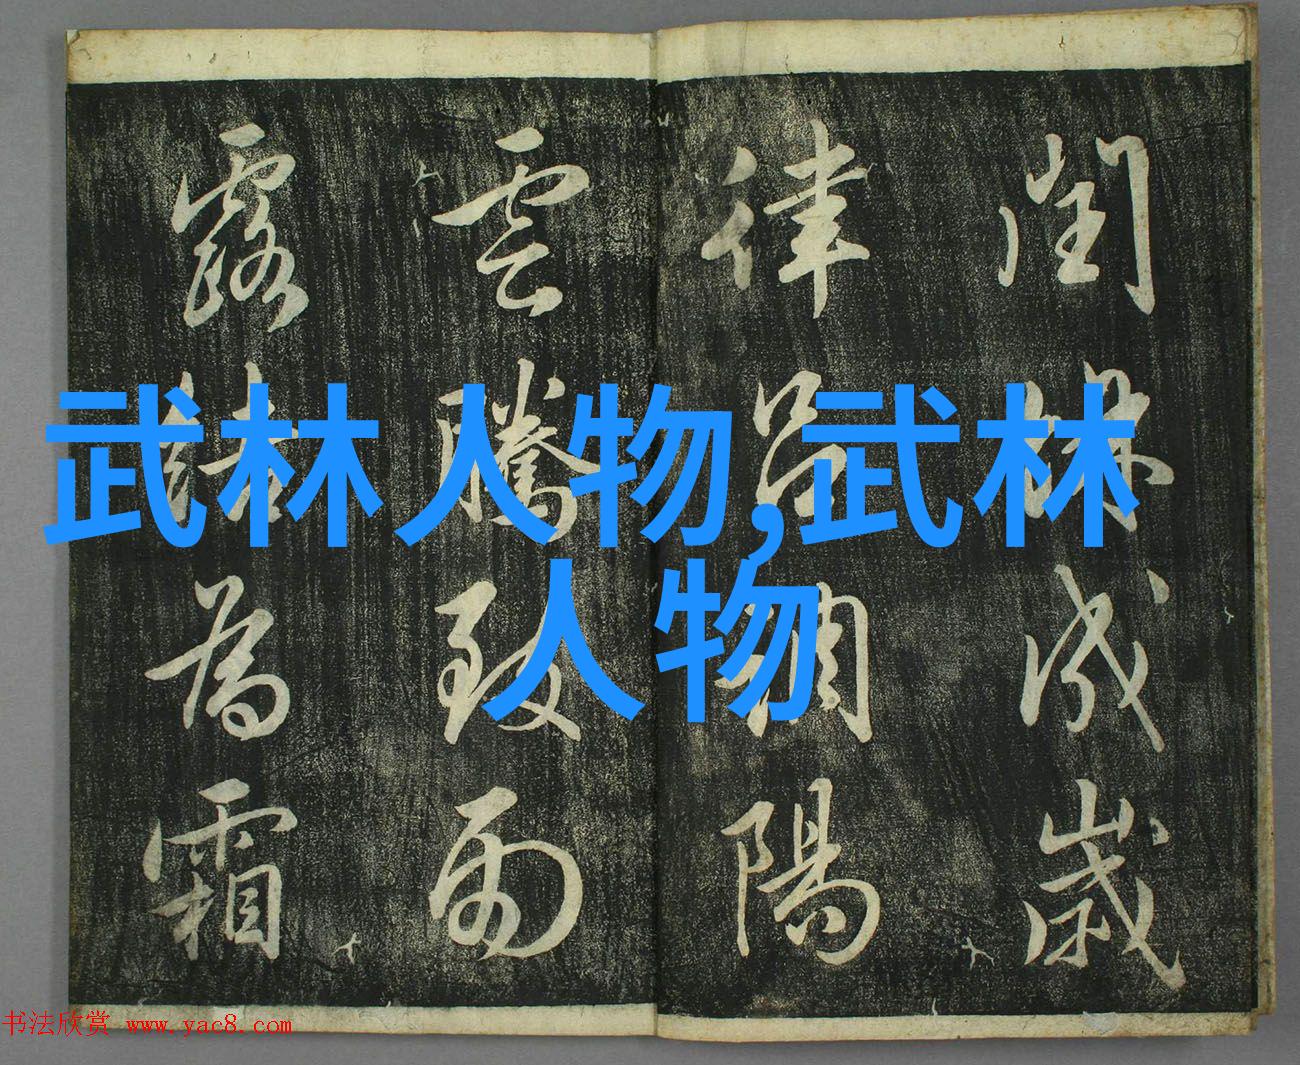 閏餘成歲
律呂調陽
雲騰致雨
露結為霜
武林人物,武林
人物
书法欣赏 www.yac8.com